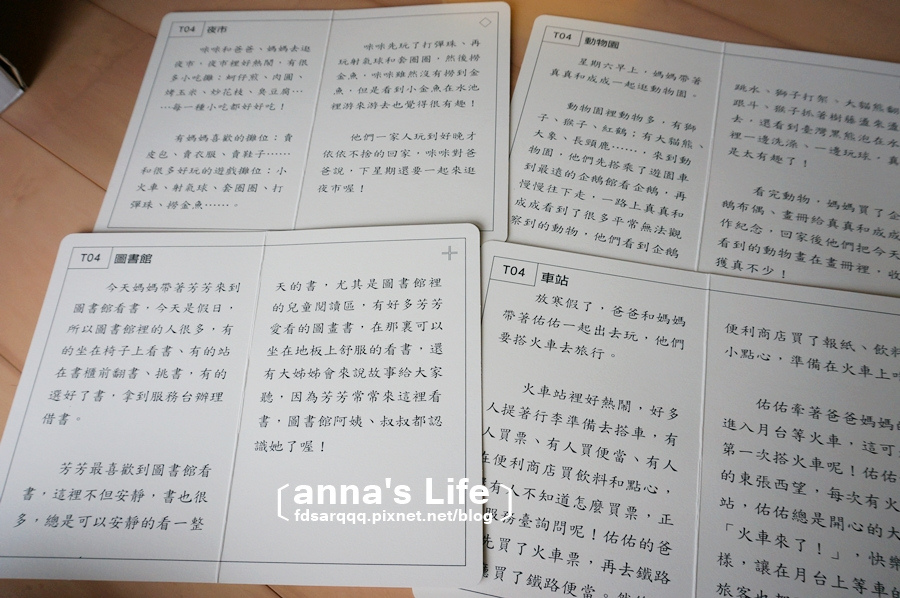 T04 夜市
咪咪和爸爸、媽媽去逛
夜市，夜市裡好熱鬧，有很
多小吃攤：蚵仔煎、肉圓、
烤玉米、炒花枝、臭豆腐…
…每一種小吃都好好吃！
有媽媽喜歡的攤位：賣
皮包、賣衣服、賣鞋子……
和很多好玩的遊戲攤位：小
火車、射氣球、套圈圈、打
彈珠、撈金魚……。
咪咪先玩了打彈珠、再
玩射氣球和套圈圈，然後撈
金魚，咪咪雖然沒有撈到金
魚，但是看到小金魚在水池
裡游來游去也覺得很有趣！
他們一家人玩到好晚才
依依不捨的回家，咪咪對爸
爸說，下星期還要一起來逛
夜市喔！
T04 動物園
星期六早上，媽媽帶著
真真和成成一起逛動物園。
動物園裡動物多，有獅
子、猴子、紅鶴；有大貓熊、
大象、長頸鹿……，來到動
物園，他們先搭乘了遊園車
到最遠的企鵝館看企鵝，再
慢慢往下走，一路上真真和
成成看到了很多平常無法觀
察到的動物，他們看到企鵝
跳水、獅子打架、大貓熊翻
跟斗、猴子抓著樹藤盪來盪
去，還看到臺灣黑熊泡在水
裡一邊洗澡、一邊玩球，真
是太有趣了！
看完動物，媽媽買了企
鵝布偶、畫冊給真真和成成
作紀念，回家後他們把今天
看到的動物畫在畫冊裡，收
獲真不少！
T04 圖書館
今天媽媽帶著芳芳來到
圖書館看書，今天是假日，
所以圖書館裡的人很多，有
的坐在椅子上看書、有的站
在書櫃前翻書、挑書，有的
選好了書，拿到服務台辦理
借書。
芳芳最喜歡到圖書館看
書，這裡不但安靜，書也很
多，總是可以安靜的看一整
天的書，尤其是圖書館裡
的兒童閱讀區，有好多芳芳
愛看的圖畫書，在那裏可以
坐在地板上舒服的看書，還
有大姊姊會來說故事給大家
聽，因為芳芳常常來這裡看
書，圖書館阿姨、叔叔都認
識她了喔！
T04 車站
放寒假了，爸爸和媽媽
帶著佑佑一起出去玩，他們
要搭火車去旅行。
火車站裡好熱鬧，好多
人提著行李準備去搭車，有
人買票、有人買便當、有人
在便利商店買飲料和點心，
有人不知道怎麼買票，正
服務臺詢問呢！佑佑的爸
先買了火車票，再去鐵路
買了鐵路便當。
便利商店買了報紙、飲料
小點心，準備在火車上吃
佑佑牽著爸爸媽媽的
進入月台等火車，這可
第一次搭火車呢！佑佑
的東張西望，每次有火
站，佑佑總是開心的大
「火車來了！」，快樂
樣，讓在月台上等車的
旅客也都
anna's Life
fdsarqqq.pixnet.net/blog